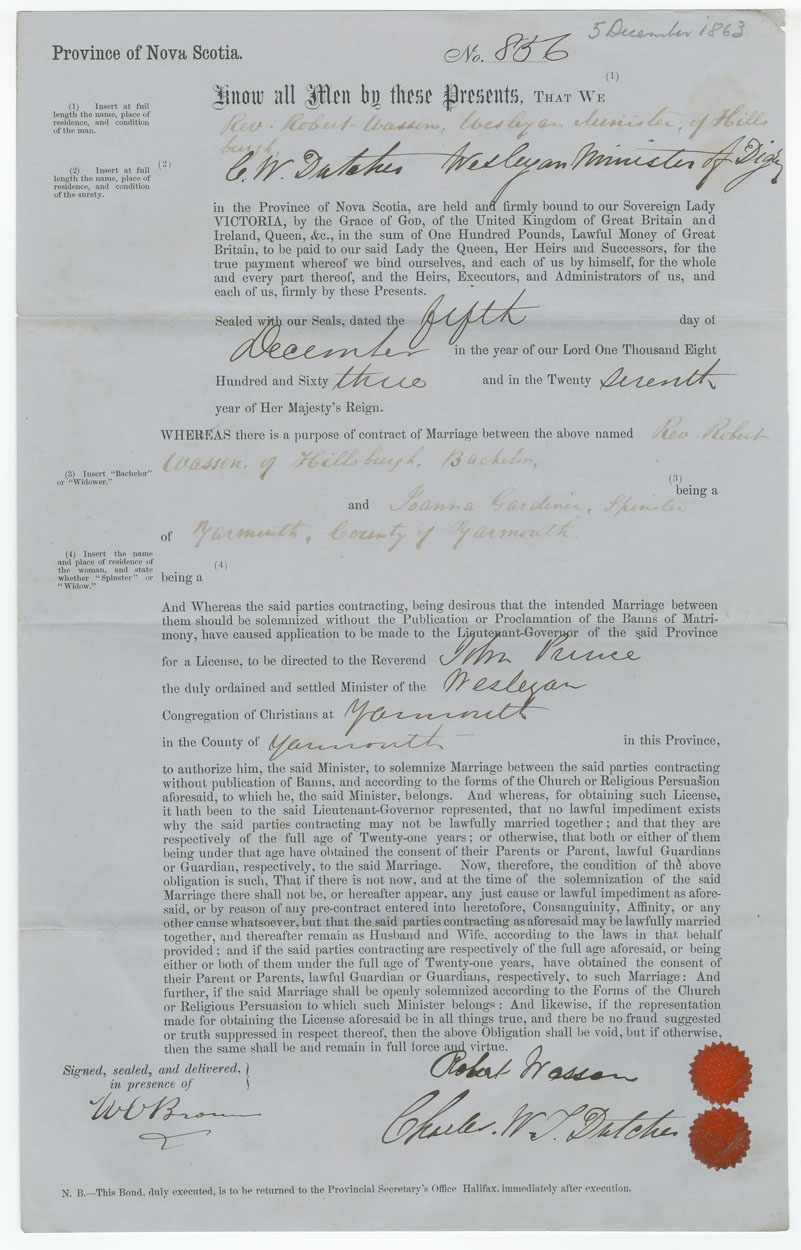 5 December 1863
Province of Nova Scotia.
No. 856
Know all Men by these Presents, THAT WE (1)
(1) Insert at full
length the name, place of
residence, and condition
of the man.
Rev. Robert Wasson, Wesleyan Minister, of Hills
burgh,
(2)
C. W. Dutcher Wesleyan Minister of Digby
(2) Insert at full
length the name, place of
residence, and condition
of the surety.
in the Province of Nova Scotia, are held and firmly bound to our Sovereign Lady
VICTORIA, by the Grace of GOD, of the United Kingdom of Great Britain and
Ireland, Queen, &c., in the sum of One Hundred Pounds, Lawful Money of Great
Britain, to be paid to our said Lady the Queen, Her Heirs and Successors, for the
true payment whereof we bind ourselves, and each of us by himself, for the whole
and every part thereof, and the Heirs, Executors, and Administrators of us, and
each of us, firmly by these Presents.
Sealed with our Seals, dated the fifth day of
December in the year of our Lord One Thousand Eight
Hundred and Sixty three and in the Twenty seventh
year of Her Majesty's Reign.
WHEREAS there is a purpose of contract of Marriage between the above named Rev. Robert
Wasson, of Hillsburgh, Bachelor,
(3) Insert "Bachelor"
or "Widower."
(3)
being a
and Joanna Gardiner, Spinster
of Yarmouth, County of Yarmouth
(4) Insert the name
and place of residence of
the woman, and state
whether "Spinster" or
"Widow."
(4)
being a
And Whereas the said parties contracting, being desirous that the intended Marriage between
them should be solemnized without the Publication or Proclamation of the Banns of Matri-
mony, have caused application to be made to the Lieutenant-Governor of the said Province
for a License, to be directed to the Reverend John Prince
the duly ordained and settled Minister of the Wesleyan
Congregation of Christians at Yarmouth
in the County of Yarmouth in this Province,
to authorize him, the said Minister, to solemnize Marriage between the said parties contracting
without publication of Banns, and according to the forms of the Church or Religious Persuasion
aforesaid, to which he, the said Minister, belongs. And whereas, for obtaining such License,
it hath been to the said Lieutenant-Governor represented, that no lawful impediment exists
why the said parties contracting may not be lawfully married together; and that they are
respectively of the full age of Twenty-one years; or otherwise, that both or either of them
being under that age have obtained the consent of their Parents or Parent, lawful Guardians
or Guardian, respectively, to the said Marriage. Now, therefore, the condition of the above
obligation is such, That if there is not now, and at the time of the solemnization of the said
Marriage there shall not be, or hereafter appear, any just cause or lawful impediment as afore-
said, or by reason of any pre-contract entered into heretofore, Consanguinity, Affinity, or any
other cause whatsoever, but that the said parties contracting as aforesaid may be lawfully married
together, and thereafter remain as Husband and Wife, according to the laws in that behalf
provided; and if the said parties contracting are respectively of the full age aforesaid, or being
either or both of them under the full age of Twenty-one years, have obtained the consent of
their Parent or Parents, lawful Guardian or Guardians, respectively, to such Marriage: And
further, if the said Marriage shall be openly solemnized according to the Forms of the Church
or Religious Persuasion to which such Minister belongs: And likewise, if the representation
made for obtaining the License aforesaid be in all things true, and there be no fraud suggested
or truth suppressed in respect thereof, then the above Obligation shall be void, but if otherwise,
then the same shall be and remain in full force and virtue.
Signed, sealed, and delivered,
in presence of
Robert Wasson
W C Brown
Charles. W. T. Dutcher
N. B.—This Bond, duly executed, is to be returned to the Provincial Secretary's Office Halifax, immediately after execution.